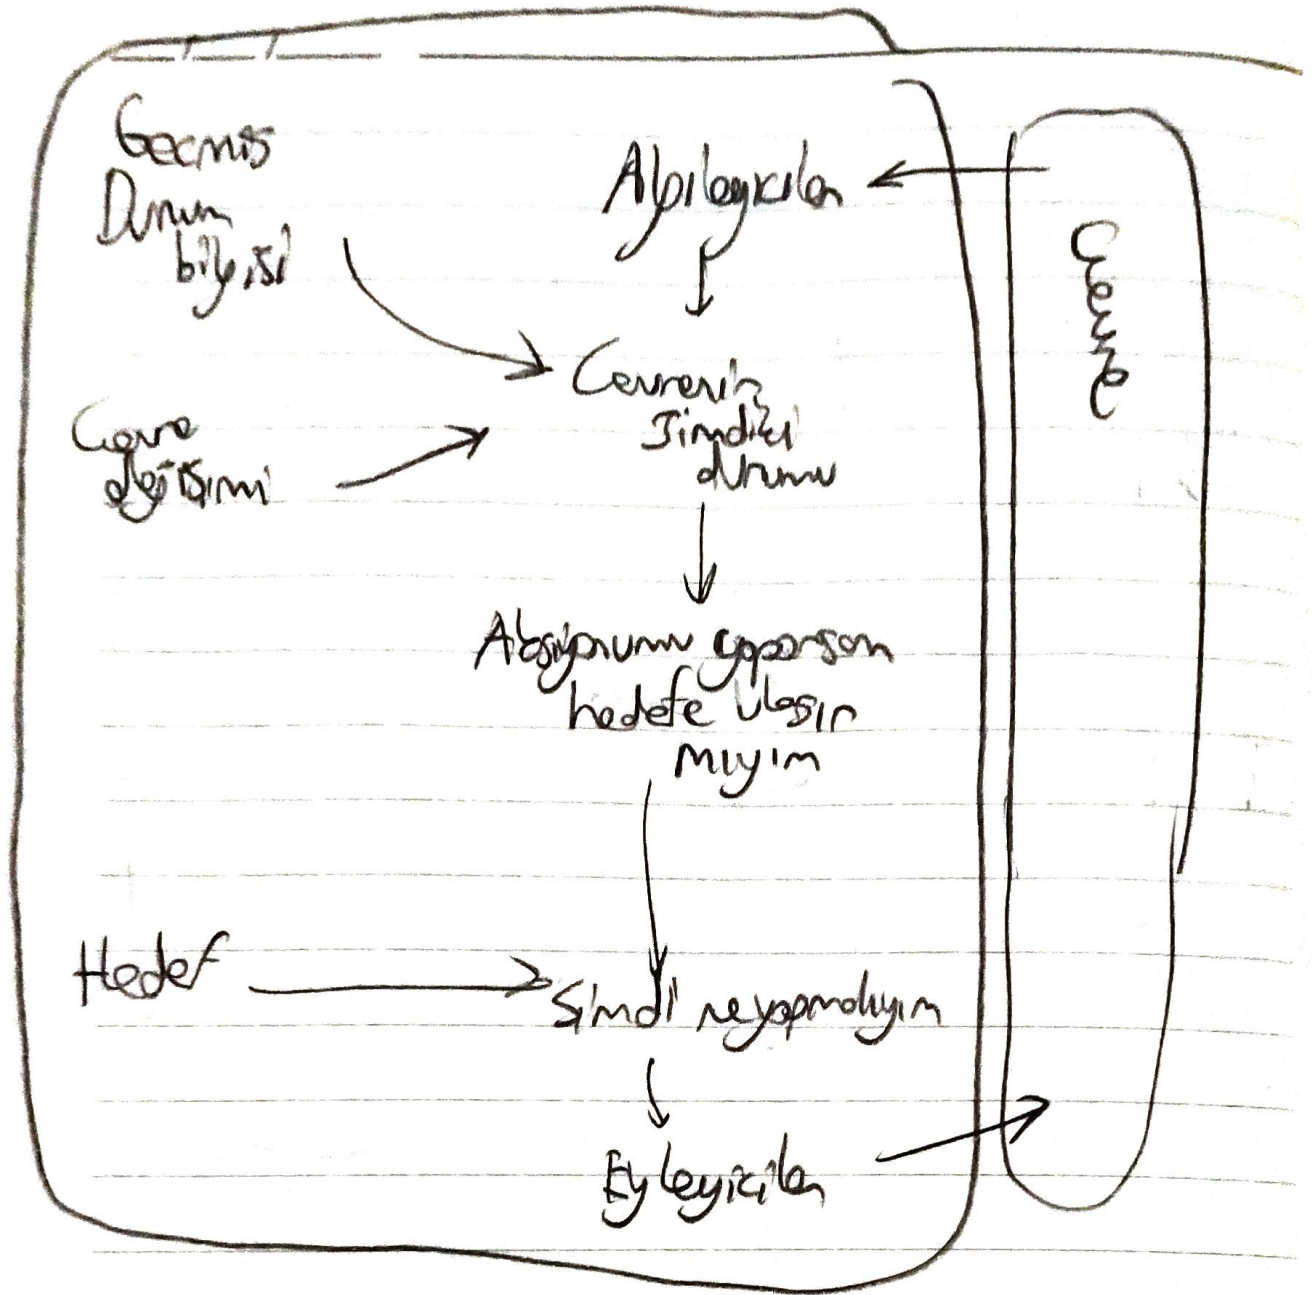 Gecmiş
Durum
bilgisi
Algılayıcılar
Cevre
Cevrenin
Şimdiki
durumu
Cevre
değişimi
yaparsam
hedefe ulaşır
mıyım
Hedef
Şimdi ne yapmalıyım
Eyleyiciler